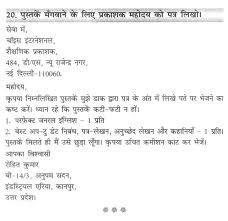 20. पुस्तकें मँगवाने के लिए प्रकाशक महोदय को पत्र लिखो।
सेवा में,
चॉइस इंटरनेशनल,
शैक्षणिक प्रकाशक,
484, डी/एस, न्यू राजेन्द्र नगर,
नई दिल्ली-110060.
महोदय,
कृपया निम्नलिखित पुस्तकें मुझे डाक द्वारा पत्र के अंत में लिखे पते पर भेजने का
कष्ट करें। ध्यान रहे कि पुस्तकें कटी-फटी न हों।
1. परफ़ेक्ट जनरल इंग्लिश – 1 प्रति
2. बेस्ट अप-टू डेट निबंध, पत्र-लेखन, अनुच्छेद लेखन और कहानियाँ – 1 प्रति।
पुस्तकें मिलते ही मैं उसे छुड़ा लूँगा। कृपया उचित कमीशन काट कर भेजें।
आपका विश्वासी
रोहित कुमार
बी-14/3, अनुपम सदन,
इंडस्ट्रियल एरिया, कानपुर,
उत्तर प्रदेश।